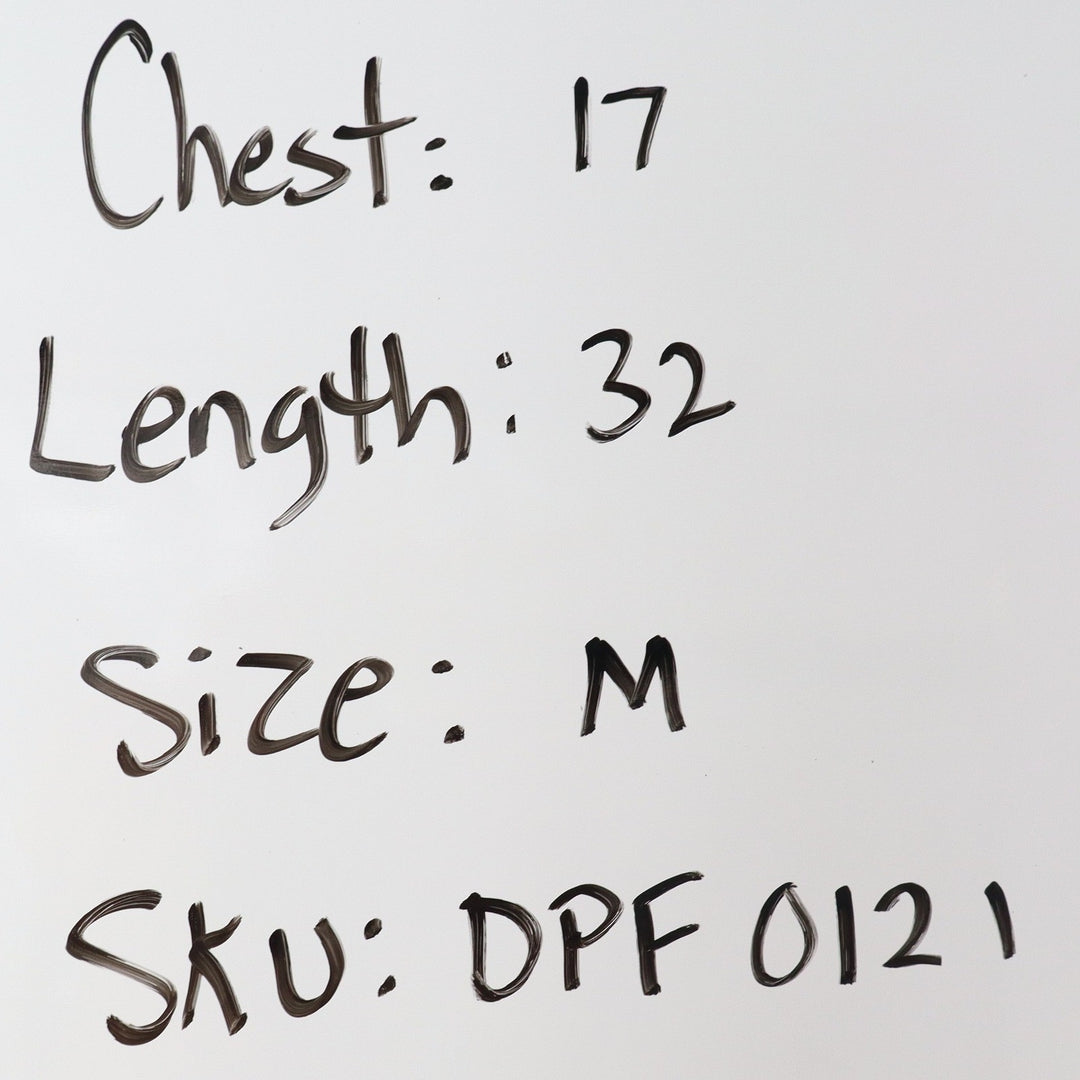 Chest: 17
Length: 32
Size: M
SKU: DPF 0121